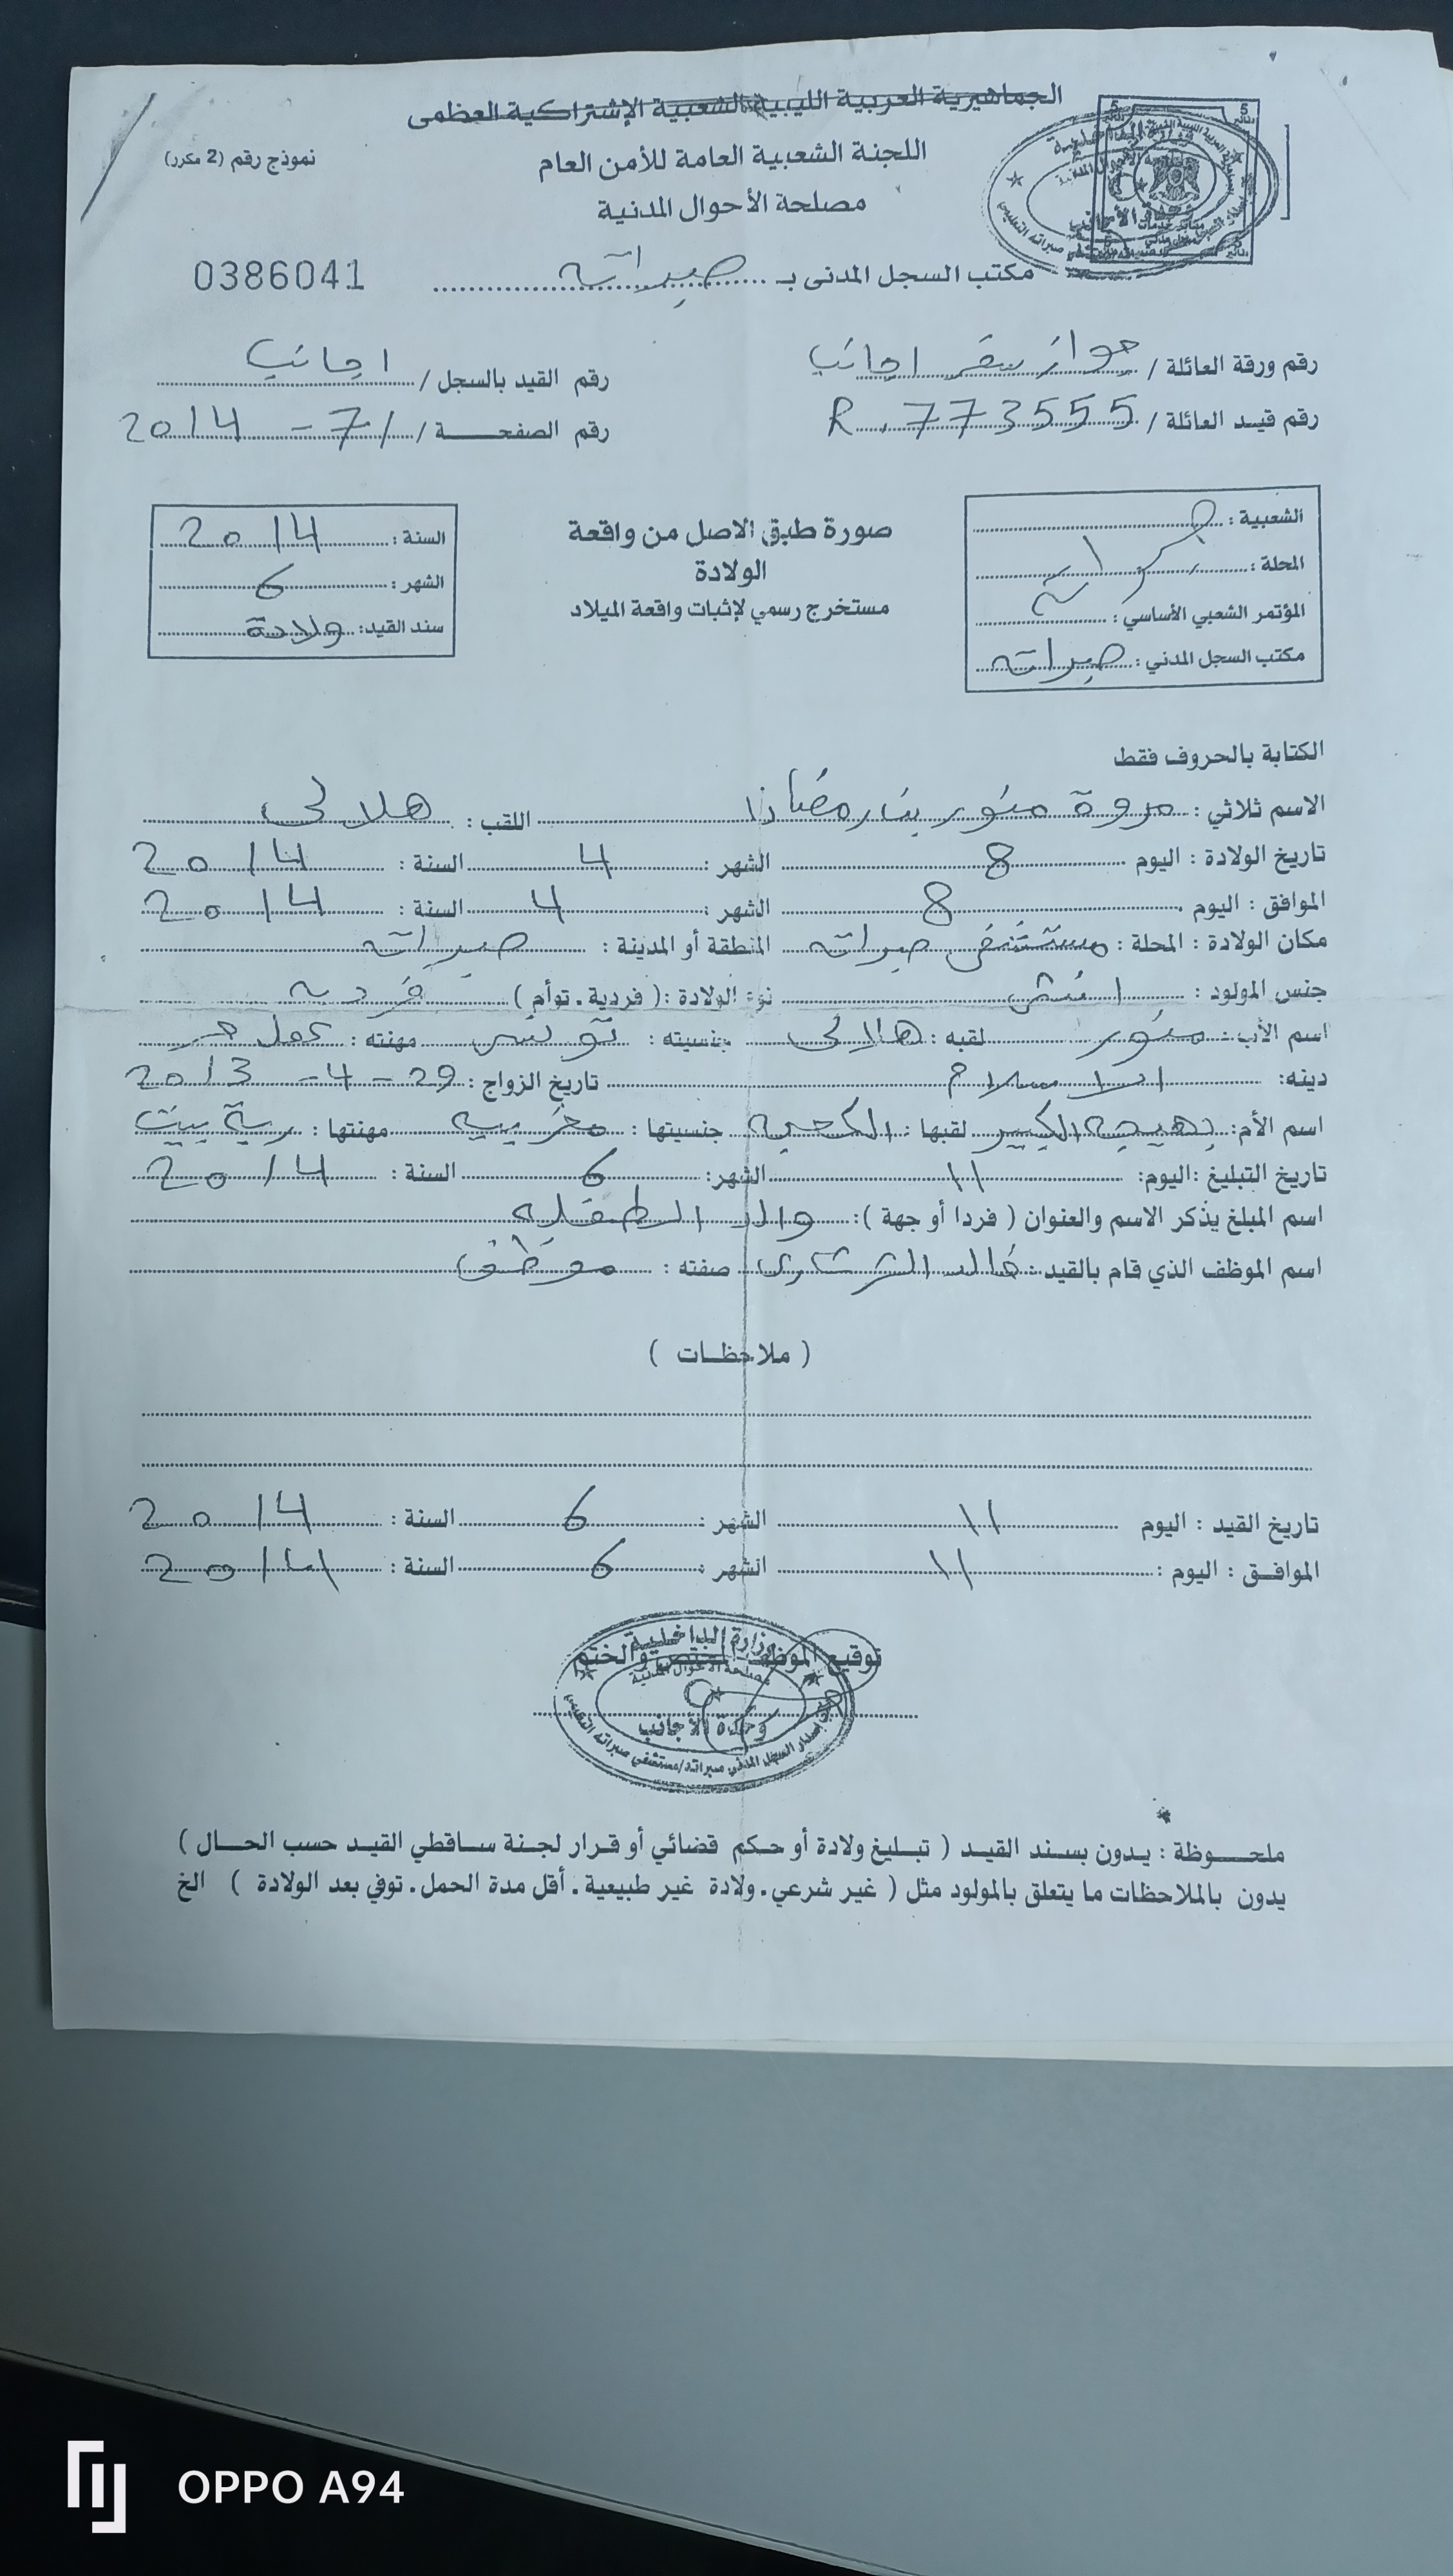 الجماهيرية العربية الليبية الشعبية الإشتراكية العظمى
اللجنة الشعبية العامة للأمن العام
نموذج رقم (2 مكرر)
مصلحة الأحوال المدنية
مكتب السجل المدنى بـ صبراته
0386041
رقم ورقة العائلة / جواز سفر اجانب رقم القيد بالسجل / اجانب
رقم قيد العائلة / R.773555 رقم الصفحة / 7 - 2014
الشعبية :
المحلة :
المؤتمر الشعبي الأساسي :
مكتب السجل المدني : صبراته
صورة طبق الاصل من واقعة
الولادة
مستخرج رسمي لإثبات واقعة الميلاد
السنة : 2014
الشهر : 6
سند القيد : ولادة
الكتابة بالحروف فقط
الاسم ثلاثي : مروة منور بن رمضان اللقب : هلالى
تاريخ الولادة : اليوم 8 الشهر : 4 السنة : 2014
الموافق : اليوم 8 الشهر : 4 السنة : 2014
مكان الولادة : المحلة : مستشفى صبراته المنطقة أو المدينة : صبراته
جنس المولود : انثى نوع الولادة : ( فردية . توأم ) فرديه
اسم الأب : منور لقبه : هلالى جنسيته : تونسى مهنته : عمل حر
دينه : الاسلام تاريخ الزواج : 29 - 4 - 2013
اسم الأم : بهيجه الكبير لقبها : جنسيتها : مغربيه مهنتها : ربة بيت
تاريخ التبليغ : اليوم : 11 الشهر : 6 السنة : 2014
اسم المبلغ يذكر الاسم والعنوان ( فردا أو جهة ) : والد الطفله
اسم الموظف الذي قام بالقيد : خالد صفته : موظف
( ملاحظات )
تاريخ القيد : اليوم 11 الشهر : 6 السنة : 2014
الموافق : اليوم : 11 الشهر : 6 السنة : 2014
توقيع الموظف المختص والختم
وزارة الداخلية
مصلحة الأحوال المدنية
وحدة الأجانب
ملحوظة : يدون بسند القيد ( تبليغ ولادة أو حكم قضائي أو قرار لجنة ساقطي القيد حسب الحال )
يدون بالملاحظات ما يتعلق بالمولود مثل ( غير شرعي . ولادة غير طبيعية . أقل مدة الحمل . توفي بعد الولادة ) الخ
OPPO A94